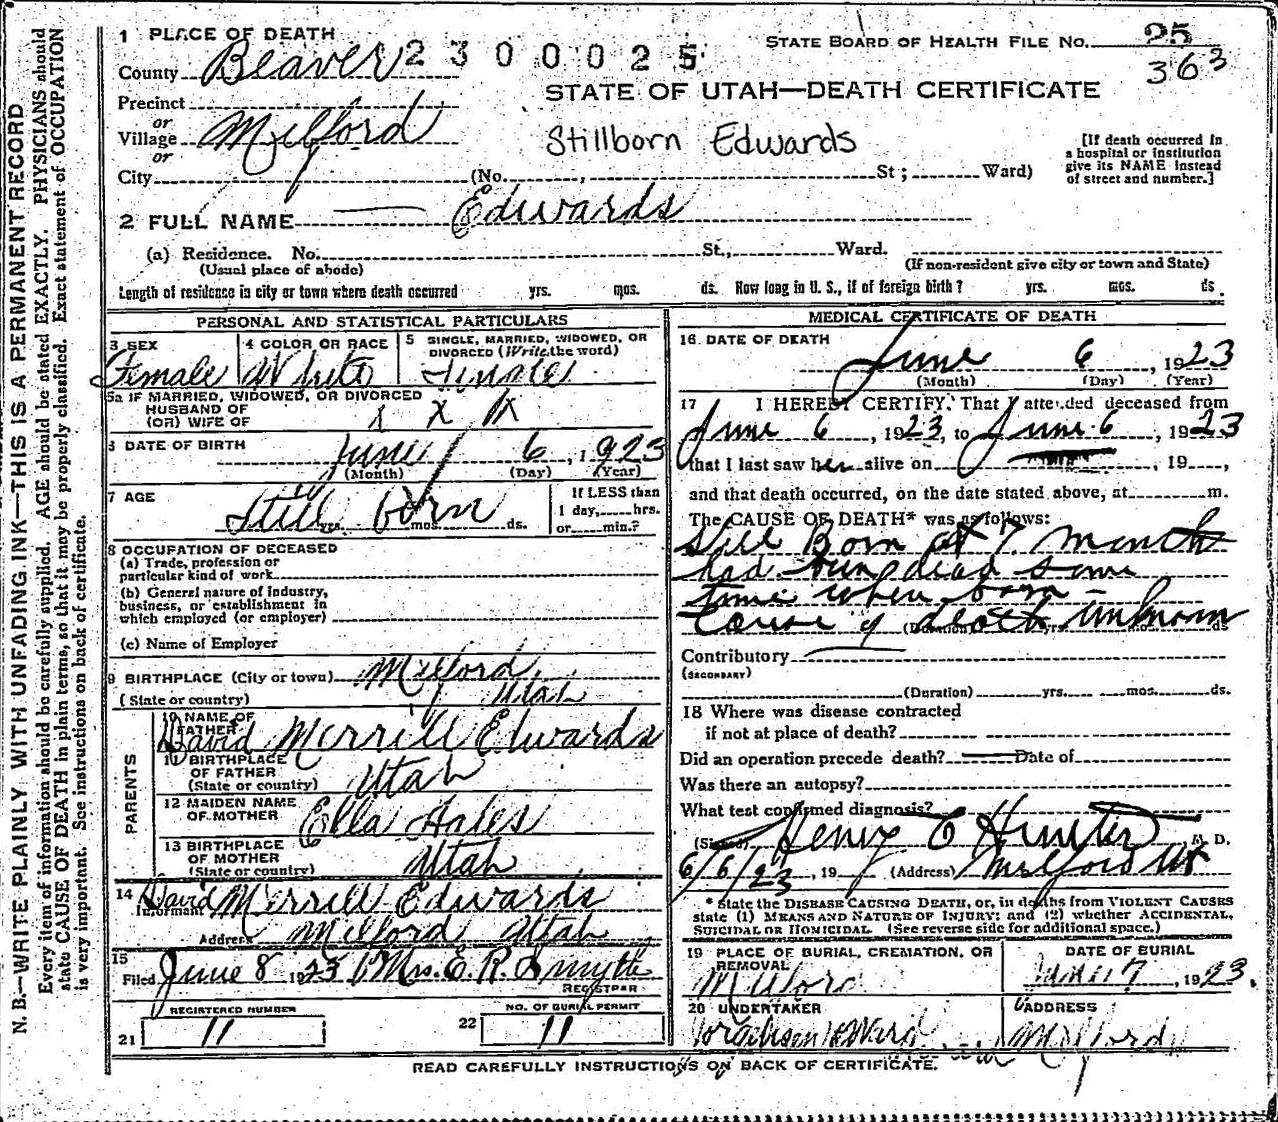 N. B.—WRITE PLAINLY WITH UNFADING INK—THIS IS A PERMANENT RECORD
Every item of information should be carefully supplied. AGE should be stated EXACTLY. PHYSICIANS should
state CAUSE OF DEATH in plain terms, so that it may be properly classified. Exact statement of OCCUPATION
is very important. See instructions on back of certificate.
1 PLACE OF DEATH
County Beaver 2300025
STATE BOARD OF HEALTH FILE NO. 25
363
Precinct
or
Village Milford
or
City
STATE OF UTAH—DEATH CERTIFICATE
Stillborn Edwards
[If death occurred in
a hospital or institution
give its NAME instead
of street and number.]
(No. , St; Ward)
2 FULL NAME — Edwards
(a) Residence. No. St., Ward.
(Usual place of abode)
(If non-resident give city or town and State)
Length of residence in city or town where death occurred yrs. mos. ds. How long in U. S., if of foreign birth? yrs. mos. ds.
PERSONAL AND STATISTICAL PARTICULARS
3 SEX
Female
4 COLOR OR RACE
White
5 SINGLE, MARRIED, WIDOWED, OR
DIVORCED (Write the word)
Single
5a IF MARRIED, WIDOWED, OR DIVORCED
HUSBAND OF
(OR) WIFE OF x x x
6 DATE OF BIRTH
June 6, 1923
(Month) (Day) (Year)
7 AGE
Still born
yrs. mos. ds.
If LESS than
1 day, hrs.
or min.?
8 OCCUPATION OF DECEASED
(a) Trade, profession or
particular kind of work
(b) General nature of industry,
business, or establishment in
which employed (or employer)
(c) Name of Employer
9 BIRTHPLACE (City or town) Milford
(State or country) Utah
PARENTS
10 NAME OF
FATHER
David Merrill Edwards
11 BIRTHPLACE
OF FATHER
(State or country) Utah
12 MAIDEN NAME
OF MOTHER Ella Hales
13 BIRTHPLACE
OF MOTHER
(State or country) Utah
14
Informant David Merrill Edwards
Address Milford Utah
15
Filed June 8 1923 Mrs. E. R. Smyth
REGISTRAR
REGISTERED NUMBER
21 11
NO. OF BURIAL PERMIT
22 11
MEDICAL CERTIFICATE OF DEATH
16 DATE OF DEATH
June 6, 1923
(Month) (Day) (Year)
17 I HEREBY CERTIFY, That I attended deceased from
June 6, 1923, to June 6, 1923
that I last saw her alive on , 19 ,
and that death occurred, on the date stated above, at m.
The CAUSE OF DEATH* was as follows:
Still Born at 7 month
had been dead some
time when born -
Cause of death unknown
(Duration) yrs. mos. ds
Contributory
(SECONDARY)
(Duration) yrs. mos. ds.
18 Where was disease contracted
if not at place of death?
Did an operation precede death? Date of
Was there an autopsy?
What test confirmed diagnosis?
(Signed) Henry C Hunter M. D.
6/6/23, 19 (Address) Milford Ut
* State the DISEASE CAUSING DEATH, or, in deaths from VIOLENT CAUSES
state (1) MEANS AND NATURE OF INJURY; and (2) whether ACCIDENTAL,
SUICIDAL OR HOMICIDAL. (See reverse side for additional space.)
19 PLACE OF BURIAL, CREMATION, OR
REMOVAL
Milford
DATE OF BURIAL
June 7, 1923.
20 UNDERTAKER
ADDRESS
Milford
READ CAREFULLY INSTRUCTIONS ON BACK OF CERTIFICATE.